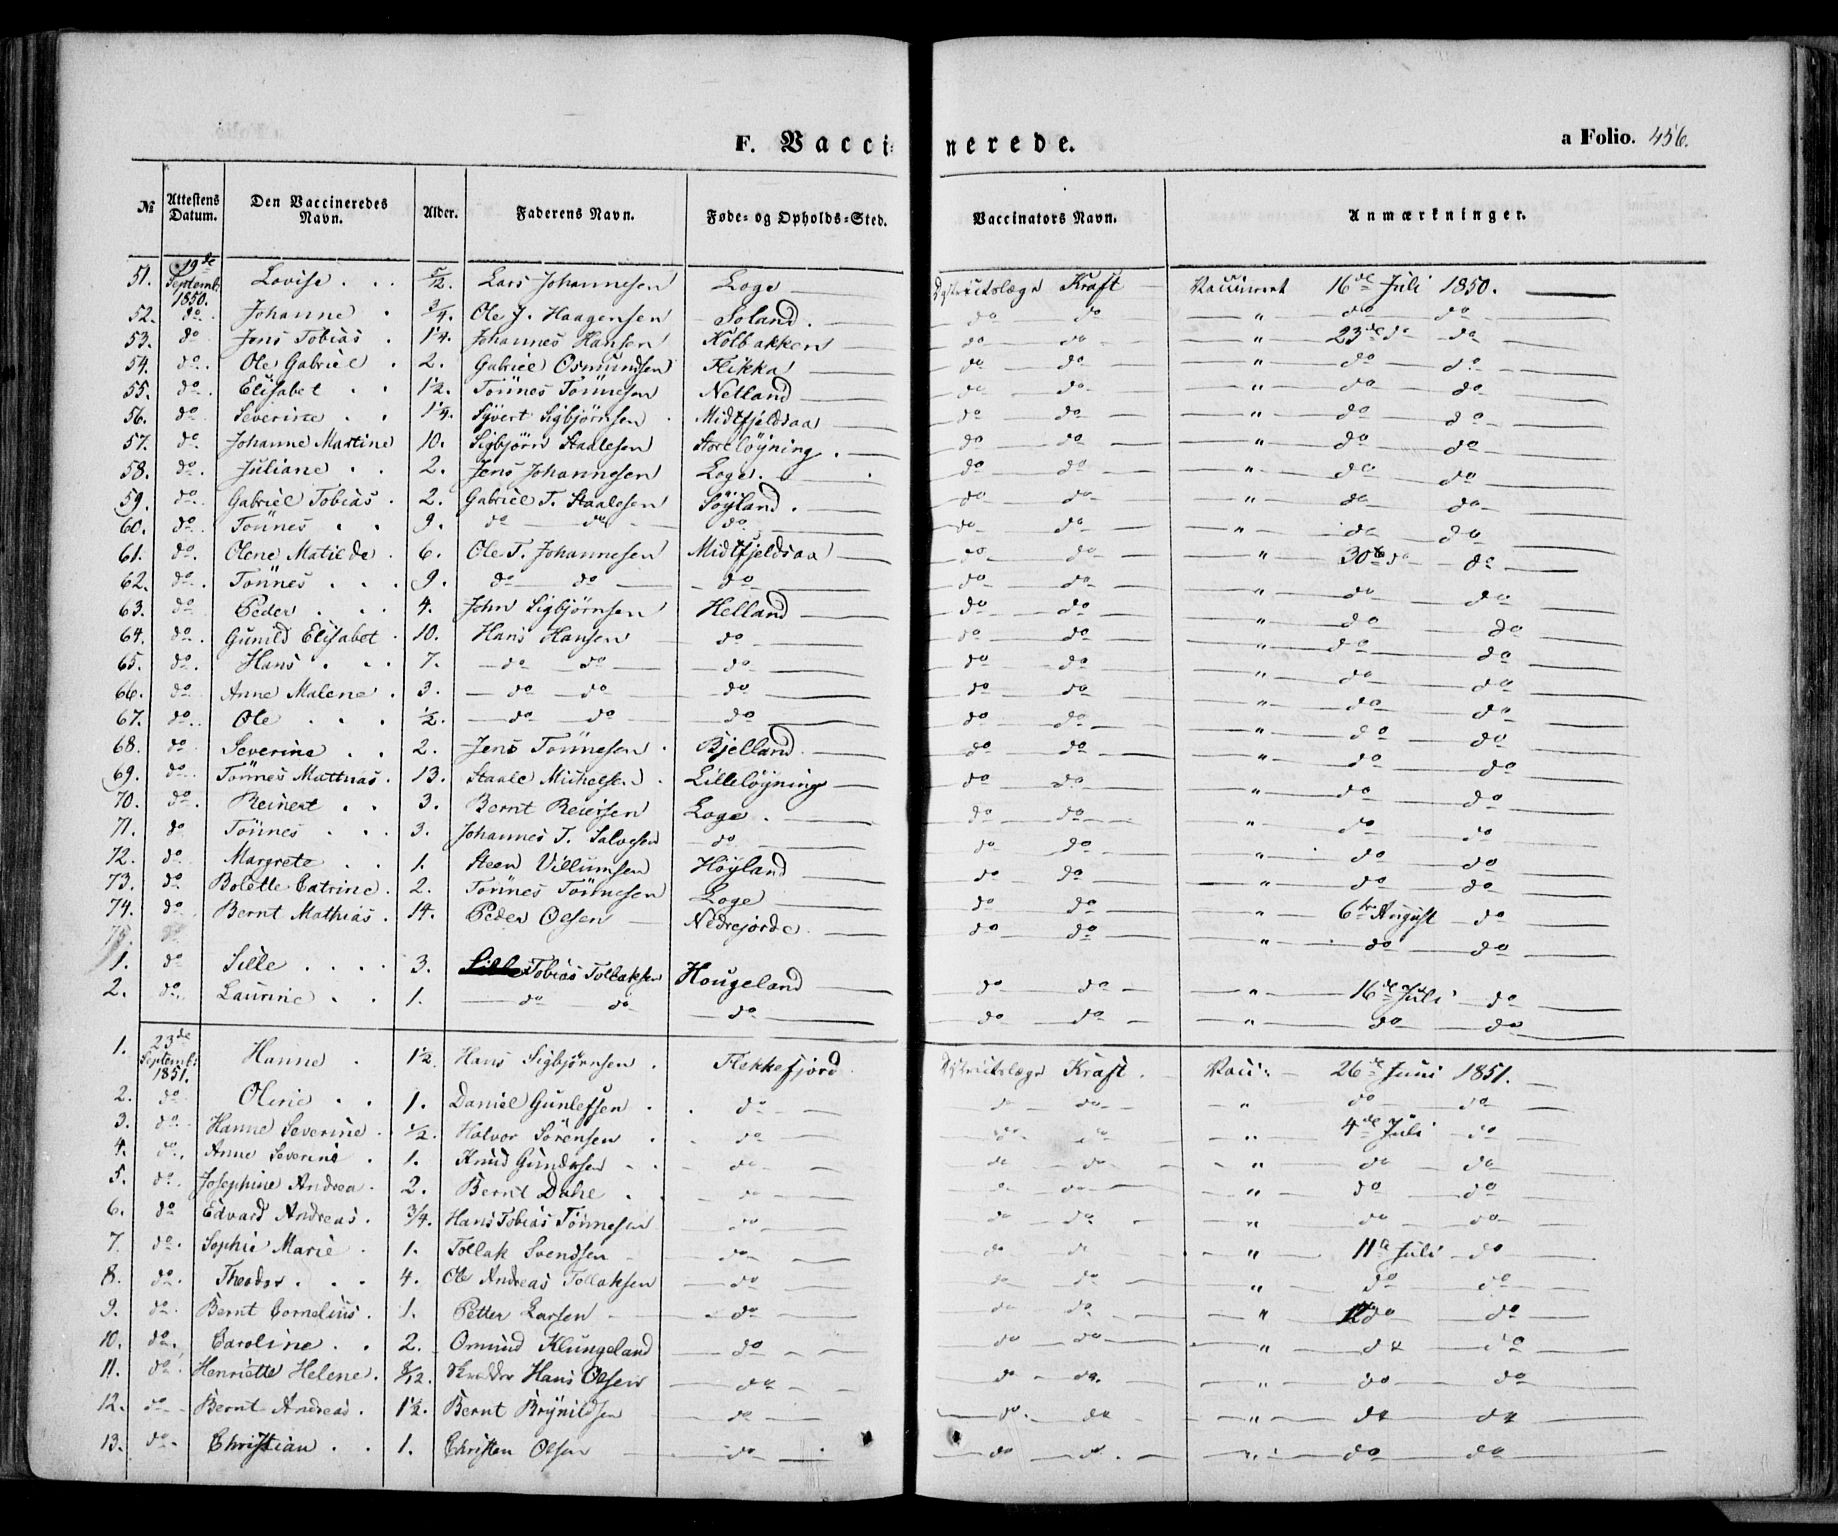 F. Vaccinerede.
a Folio. 456.
№ | Attestens Datum. | Den Vaccineredes Navn. | Alder. | Faderens Navn. | Føde- og Opholds-Sted. | Vaccinators Navn. | Anmærkninger.
51. 19de Septemb: 1850. Lovise . . . 5/12. Lars Johannesen Loge — Distriktslæge Kraft — Vaccineret 16de Juli 1850. —
52. do. Johanne . 3/4. Ole J. Haagensen Soland. — do do — " — do do —
53. do Jens Tobias . 1 1/4. Johannes Hansen Kolbakken — do do — " — 23de do do —
54. do. Ole Gabriel . 2. Gabriel Osmundsen Flikka — do do — " — do do —
55. do. Elisabet . . 1 1/2. Tönnes Tönnesen Netland — do do — " — do do —
56. do Severine . . 1 1/4. Syvert Sigbjörnsen . Midtfjeldsaa — do do — " — do do —
57. do. Johanne Martine 10. Sigbjörn Staalesen Storelöyning . — do do — " — do do —
58. do. Juliane . . 2. Jens Johannesen Loge. — do do — " — do do —
59. do. Gabriel Tobias . 2. Gabriel T. Staalesen Söyland . — do do — " — do do —
60. do. Tönnes . . 9. do do do — do do — " — do do —
61. do. Olene Matilde . 6. Ole T. Johannesen Midtfjeldsaa — do do — " — 30te do do —
62. do. Tönnes . . . 9. do do — do — do do — " — do do —
63. do Peder . . . 4. John Sigbjörnsen Helland — do do — " — do do —
64. do. Gunild Elisabet . 10. Hans Hansen do — do do — " — do do —
65. do. Hans . . . 7. — do do — do — do do — " — do do —
66. do Anne Malene . 3. — do do — do — do do — " — do do —
67. do. Ole . . . 1/2. — do do — do — do do — " — do do —
68. do Severine . . 2. Jens Tönnesen . Bjelland. — do do — " — do do —
69. do. Tönnes Mathias . 13. Staale Michelsen . Lillelöyning — do do — " — do do —
70. do. Reinert . . 3. Bernt Reiersen Loge . — do do — " — do do —
71. do Tönnes . . . 3. Johannes T. Salvesen do — do do — " — do do —
72. do. Margrete . . 1. Steen Villumsen Höyland — do do — " — do do —
73. do. Bolette Catrine . 2. Tönnes Tönnesen Loge — do do — " — 6te August do —
74. do Bernt Mathias . 14. Peder Olsen — Nedrejorde . — do do — " — do do —
75. do
1. do Sille . . . . 3. Tobias Tollaksen Hougeland — do do — " — 16de Juli do —
2. do. Laurine . . 1. — do do — do — do do — " — do do —
1. 23de Septemb: 1851. Hanne . 1 1/2. Hans Sigbjörnsen . Flekkefjord Distriktslæge Kraft . — Vacc: — 26de Juni 1851. —
2. do. Oline . . 1. Daniel Gunlefsen . . do — do do — " — do do —
3. do. Hanne Severine . 1/2. Halvor Sörensen . do — do do — " — 4de Juli do —
4. do. Anne Severine . 1. Knud Gundersen . do — do do — " — do do —
5. do. Josephine Andrea . 2. Bernt Dahe . . do — do do — " — do do —
6. do Edvard Andreas . 3/4. Hans Tobias Tönnesen do — do do — " — do do —
7. do. Sophie Marie . 1. Tollak Svendsen — do — do do — " — 11te Juli do —
8. do. Theodor . . . 4. Ole Andreas Tollaksen do — do do — " — do do —
9. do. Bernt Cornelius . 1. Petter Larsen — do — do do — " — 12 do do —
10. do. Caroline . . 2. Omund Klungeland do — do do — " — do do —
11. do. Henriette Helene . 8/12. Skrædder Hans Olsen do — do do. — " — do do —
12. do Bernt Andreas . 1 1/2. Bernt Brynildsen do — do. do — " — do do —
13. do. Christian . . 1. Christen Olsen — do — do do . — " — do do —